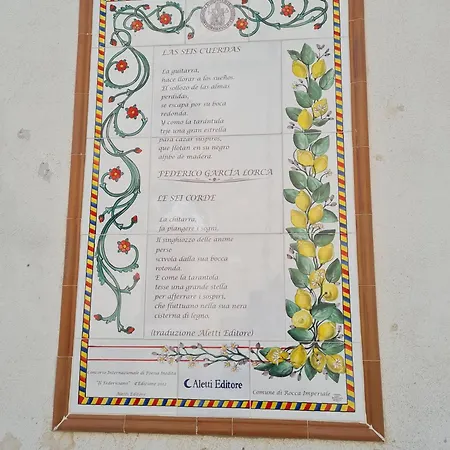 LAS SEIS CUERDAS
La guitarra,
hace llorar a los sueños.
El sollozo de las almas
perdidas,
se escapa por su boca
redonda.
Y como la tarántula
teje una gran estrella
para cazar suspiros,
que flotan en su negro
aljibe de madera.
FEDERICO GARCÍA LORCA
LE SEI CORDE
La chitarra,
fa piangere i sogni.
Il singhiozzo delle anime
perse
scivola dalla sua bocca
rotonda.
E come la tarantola
tesse una grande stella
per afferrare i sospiri,
che fluttuano nella sua nera
cisterna di legno.
(traduzione Aletti Editore)
Internazionale di Poesia Inedita
"Il Federiciano"
Aletti Editore
Aletti Editore
Comune di Rocca Imperiale